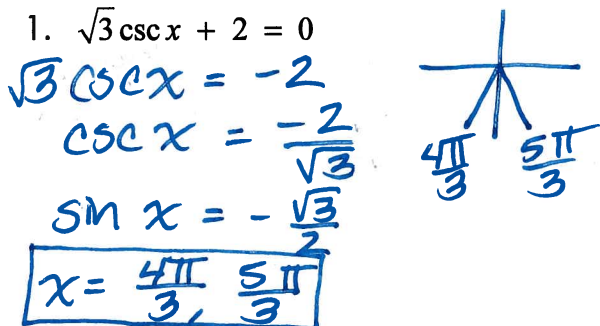 1. √3 csc x + 2 = 0
√3 csc x = -2
csc x = -2/√3
sin x = - √3/2
x = 4π/3, 5π/3
4π/3 5π/3